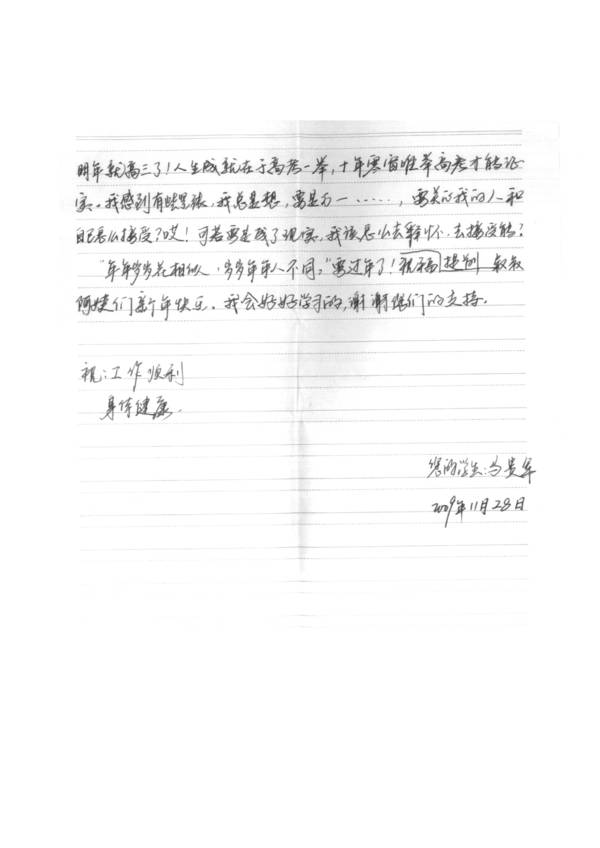 明年就高三了!人生成就在于高考一举,十年寒窗唯举高考才能证
实。我感到有些紧张,我总是想,要是万一……,要关心我的人和
自己怎么接受?哎!可若要是成了现实,我该怎么去释怀,去接受能?
"年年岁岁花相似,岁岁年年人不同。"要过年了!祝福提前 叔叔
阿姨们新年快乐。我会好好学习的,谢谢你们的支持。
祝:工作顺利
身体健康
您的学生:马贵军
2009年11月28日